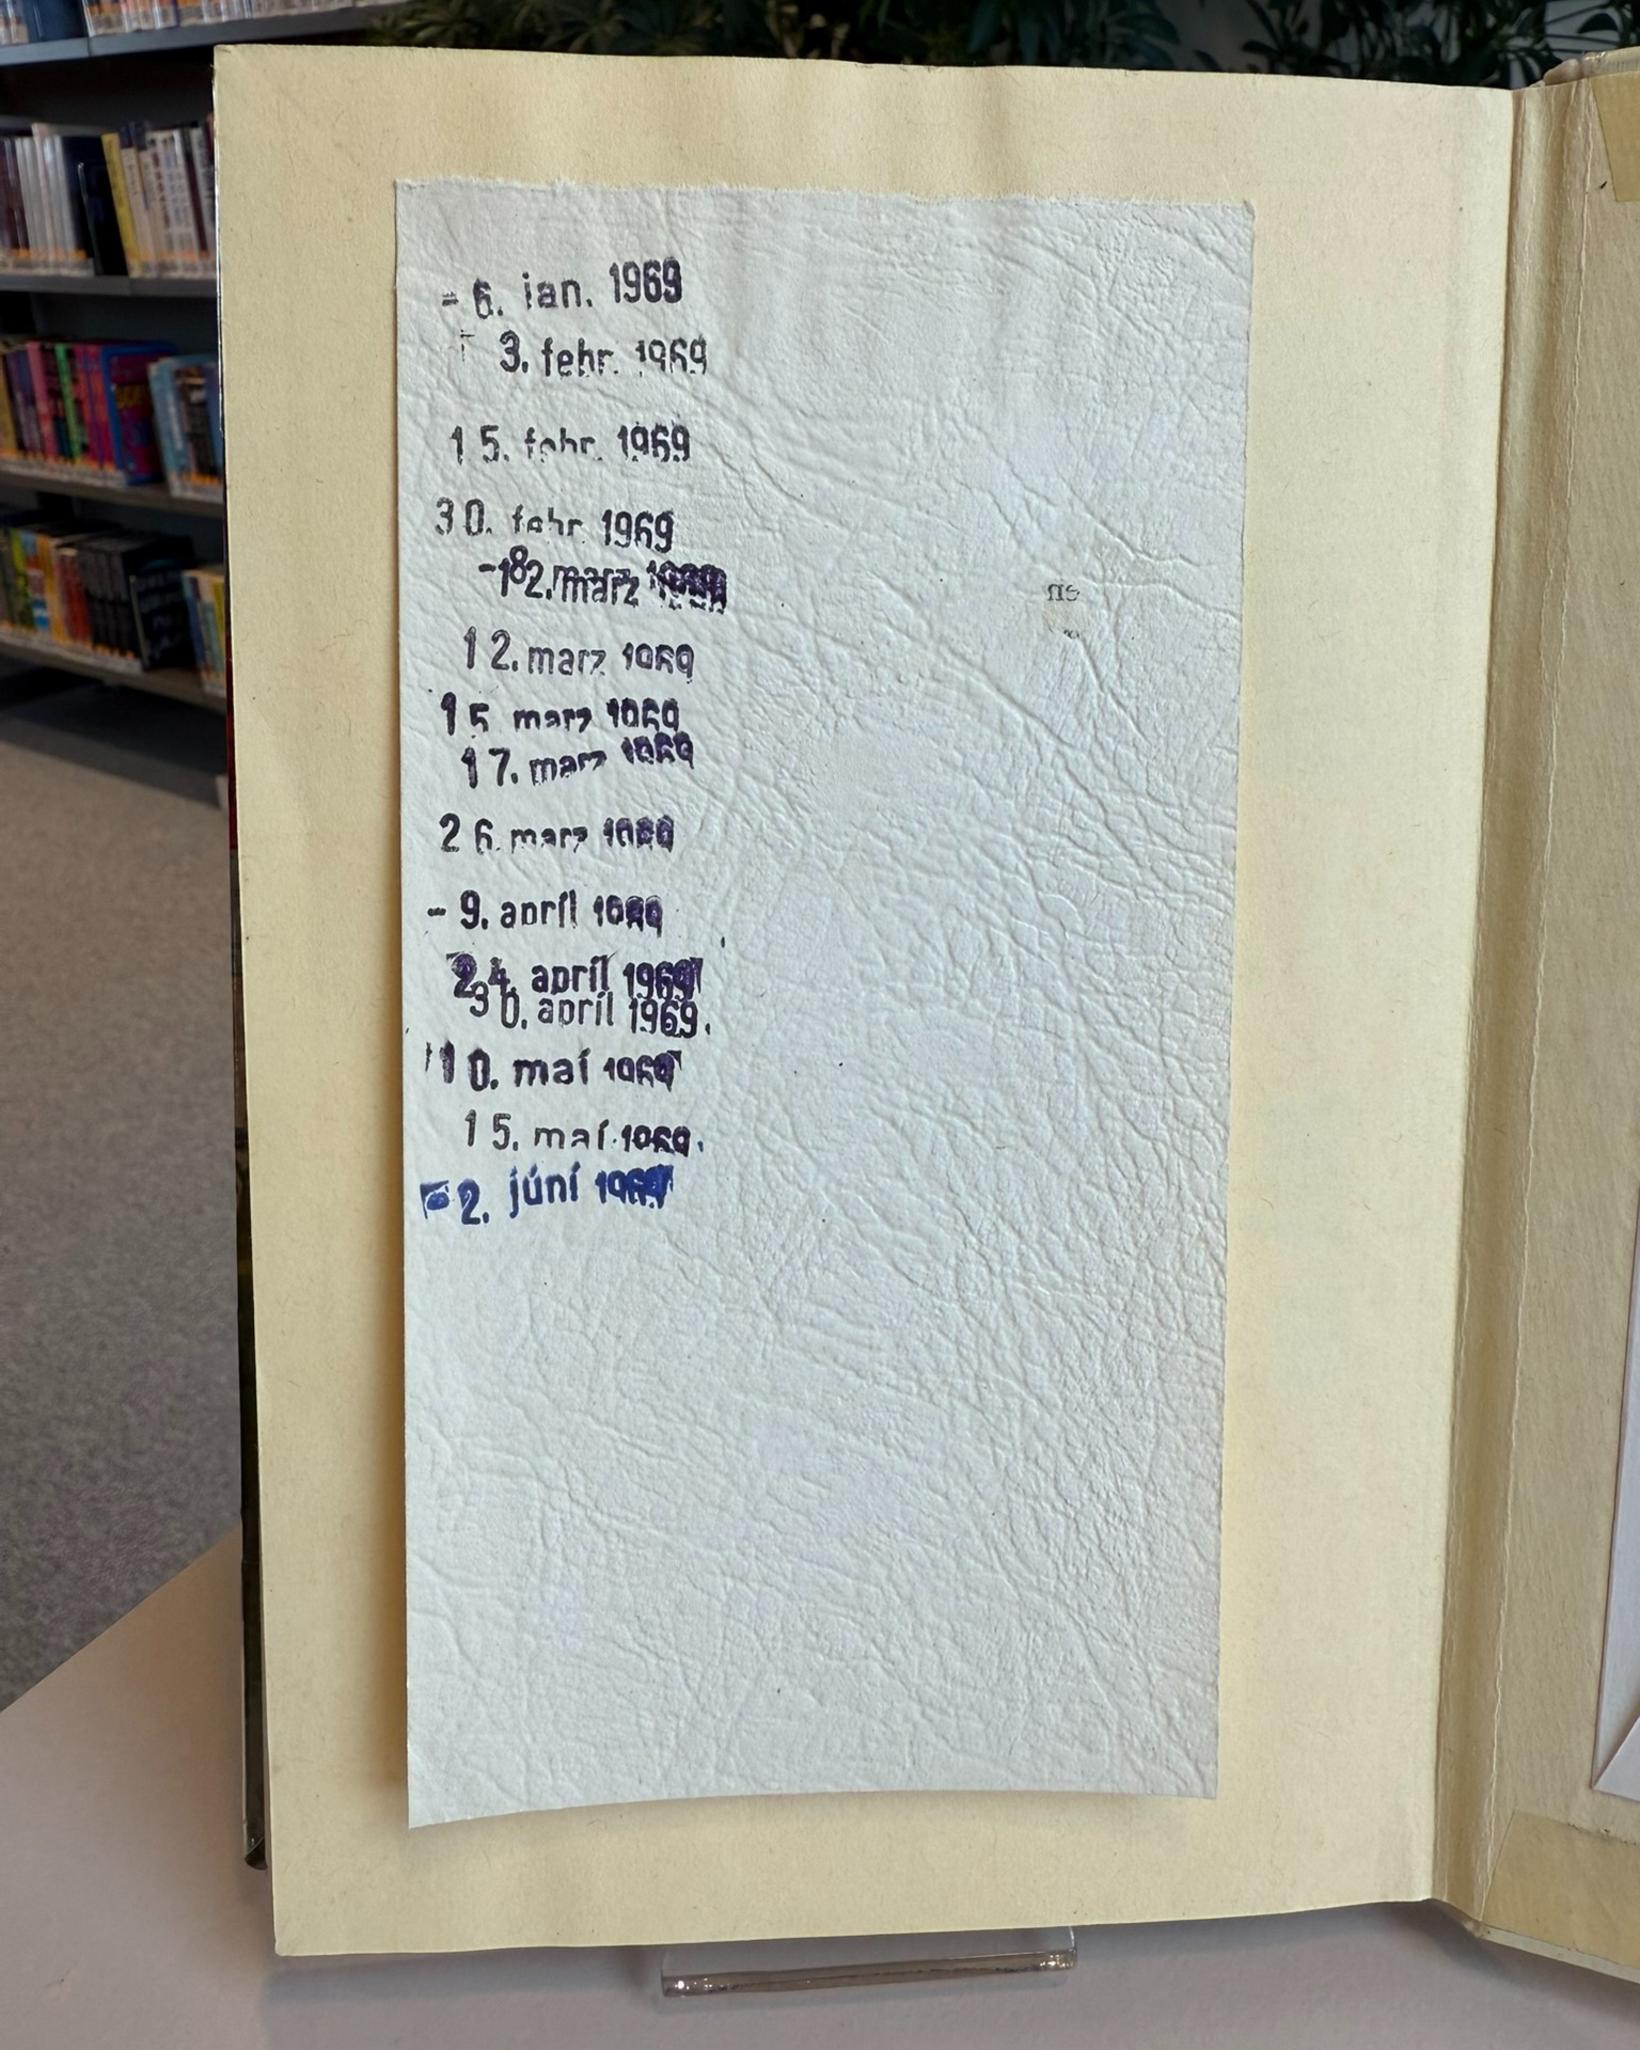 - 6. jan. 1969
3. febr. 1969
15. febr. 1969
30. febr. 1969
12. marz 1969
15 marz 1969
17. marz 1969
26. marz 1969
- 9. apríl 1969
24. apríl 1969
30. apríl 1969.
10. maí 1969
15. maí 1969.
2. júní 1969
en